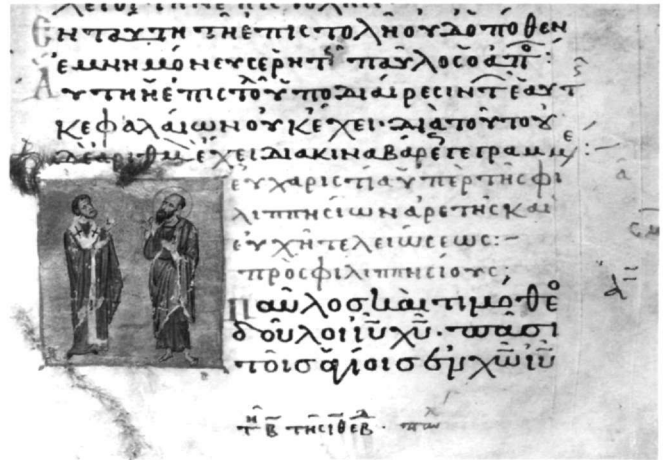 Ἐν ταύτη τῆ ἐπιστολῆ οὐδόποθεν
ἐμνημόνευσε ρητ παῦλος ὁ ἀπο:
Αὕτη ἡ ἐπιστολ ὑποδιαίρεσιν τε αυτ
κεφαλαίων οὐκ ἔχει· διὰ τούτου
δὲ ἀριθμ ἔχει διὰ κιναβάρε γεγραμμε:
εὐχαριστία ὑπὲρ τῆς φι
λιππησίων ἀρετῆς καὶ
εὐχὴ τελειώσεως:–
πρὸς φιλιππησίους:
Παῦλος καὶ τιμόθε
δοῦλοι ιυ χυ· πᾶσι
τοῖς ἁγίοις ἐν χω ιυ